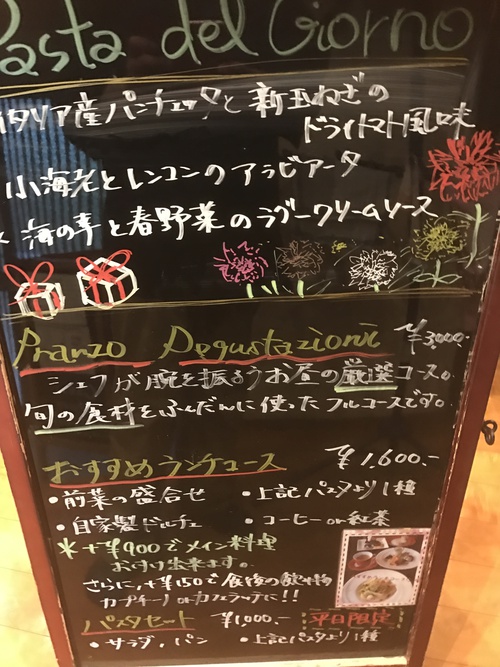 Pasta del Giorno
イタリア産パンチェッタと新玉ねぎの
ドライトマト風味
小海老とレンコンのアラビアータ
海の幸と春野菜のラグークリームソース
Pranzo Degustazioni ¥3,000-
シェフが腕を振るうお昼の厳選コース。
旬の食材をふんだんに使ったフルコースです。
おすすめランチコース ¥1,600.-
・前菜の盛合せ ・上記パスタより1種
・自家製ドルチェ ・コーヒー or 紅茶
*+¥900でメイン料理
お付け出来ます。
さらに、+¥150で食後の飲み物
カプチーノ or カフェラッテに!!
パスタセット ¥1,000.- 平日限定
・サラダ、パン ・上記パスタより1種